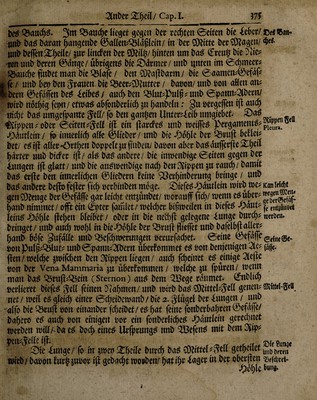 Ander Theil / Cap. I. 375
des Bauchs. Im Bauche lieget gegen der rechten Seiten die Leber/
und das daran hangende Gallen-Bläßlein / in der Mitte der Magen/
und dessen Theile / zur lincken der Miltz / hinten um das Creutz die Nie-
ren und deren Gänge / übrigens die Därmer / und unten im Schmeer-
Bauche findet man die Blase / den Mastdarm / die Saamen-Gefäs-
se / und bey den Frauen die Beer-Mutter / davon und von allen an-
dern Gefässen des Leibes / auch den Blut-Pulß- und Spann-Adern/
wird nöthig seyn / etwas absonderlich zu handeln: Zu vergessen ist auch
nicht das umgespante Fell / so den gantzen Unter-Leib umgiebet. Das
Rippen / oder Seiten-Fell ist ein starckes und weisses Pergaments-
Häutlein / so innerlich alle Glieder / und die Höhle der Brust beklei-
det; es ist aller-Orthen doppelt zu finden / davon aber das äusserste Theil
härter und dicker ist / als das andere / die inwendige Seiten gegen der
Lungen ist glatt / und die auswendige nach den Rippen zu rauch / damit
das erste den innerlichen Gliedern keine Verhinderung bringe / und
das andere desto fester sich verbinden möge. Dieses Häutlein wird we-
gen Menge der Gefässe gar leicht entzündet / worauff sich / wenn es über-
hand nimmet / offt ein Eyter samlet / welcher bißweilen in dieses Häut-
leins Höhle stehen bleibet / oder in die nechst gelegene Lunge durch-
dringet / und auch wohl in die Höhle der Brust fliesset und daselbst aller-
hand böse Zufälle und Beschwerungen verursachet. Seine Gefässe
von Pulß-Blut- und Spann-Adern überkommet es von denjenigen Ae-
sten / welche zwischen den Rippen liegen / auch scheinet es einige Aeste
von der Vena Mammaria zu überkommen / welche zu spüren / wenn
man das Brust-Bein (Sternon) aus dem Wege räumet. Endlich
verlieret dieses Fell seinen Nahmen / und wird das Mittel-Fell genen-
net / weil es gleich einer Scheidewand / die 2. Flügel der Lungen / und
also die Brust von einander scheidet / es hat seine sonderbahren Gefässe/
dahero es auch von einigen vor ein sonderliches Häutlein gerechnet
werden will / da es doch eines Ursprungs und Wesens mit dem Rip-
pen-Felle ist.
Die Lunge / so in zwo Theile durch das Mittel-Fell getheilet
wird / davon kurtz zuvor ist gedacht worden / hat ihr Lager in der obersten
Höhle
Des Bau-
ches.
Rippen Fell
Pleura.
kan leicht
wegen Men-
ge der Gefäs-
se entzündet
werden.
Seine Ge-
fässe.
Mittel-Fell
Die Lunge
und deren
Beschrei-
bung.